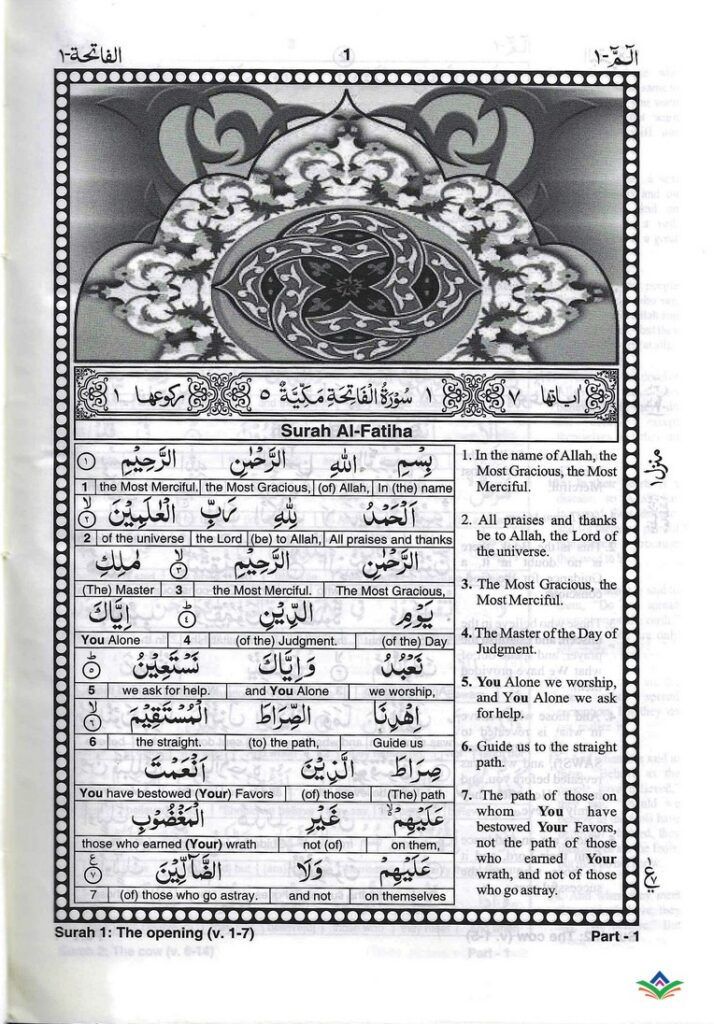 الفاتحة-١ 1 الٓمّٓ-١
اٰیاتها ٧ ١ سُوْرَةُ الْفَاتِحَةِ مَكِّيَّةٌ ٥ ركوعها ١
Surah Al-Fatiha
بِسْمِ اللّٰهِ الرَّحْمٰنِ الرَّحِيْمِ ١
1 the Most Merciful. the Most Gracious, (of) Allah, In (the) name
اَلْحَمْدُ لِلّٰهِ رَبِّ الْعٰلَمِيْنَ ۙ ٢
2 of the universe the Lord (be) to Allah, All praises and thanks
الرَّحْمٰنِ الرَّحِيْمِ ۙ ٣ مٰلِكِ
(The) Master 3 the Most Merciful. The Most Gracious,
يَوْمِ الدِّيْنِ ؕ ٤ اِيَّاكَ
You Alone 4 (of the) Judgment. (of the) Day
نَعْبُدُ وَاِيَّاكَ نَسْتَعِيْنُ ؕ ٥
5 we ask for help. and You Alone we worship,
اِهْدِنَا الصِّرَاطَ الْمُسْتَقِيْمَ ۙ ٦
6 the straight. (to) the path, Guide us
صِرَاطَ الَّذِيْنَ اَنْعَمْتَ
You have bestowed (Your) Favors (of) those (The) path
عَلَيْهِمْ ۙ غَيْرِ الْمَغْضُوْبِ
those who earned (Your) wrath not (of) on them,
عَلَيْهِمْ وَلَا الضَّآلِّيْنَ ع ٧
7 (of) those who go astray. and not on themselves
1. In the name of Allah, the
Most Gracious, the Most
Merciful.
2. All praises and thanks
be to Allah, the Lord of
the universe.
3. The Most Gracious, the
Most Merciful.
4. The Master of the Day of
Judgment.
5. You Alone we worship,
and You Alone we ask
for help.
6. Guide us to the straight
path.
7. The path of those on
whom You have
bestowed Your Favors,
not the path of those
who earned Your
wrath, and not of those
who go astray.
منزل ١
Surah 1: The opening (v. 1-7) Part - 1